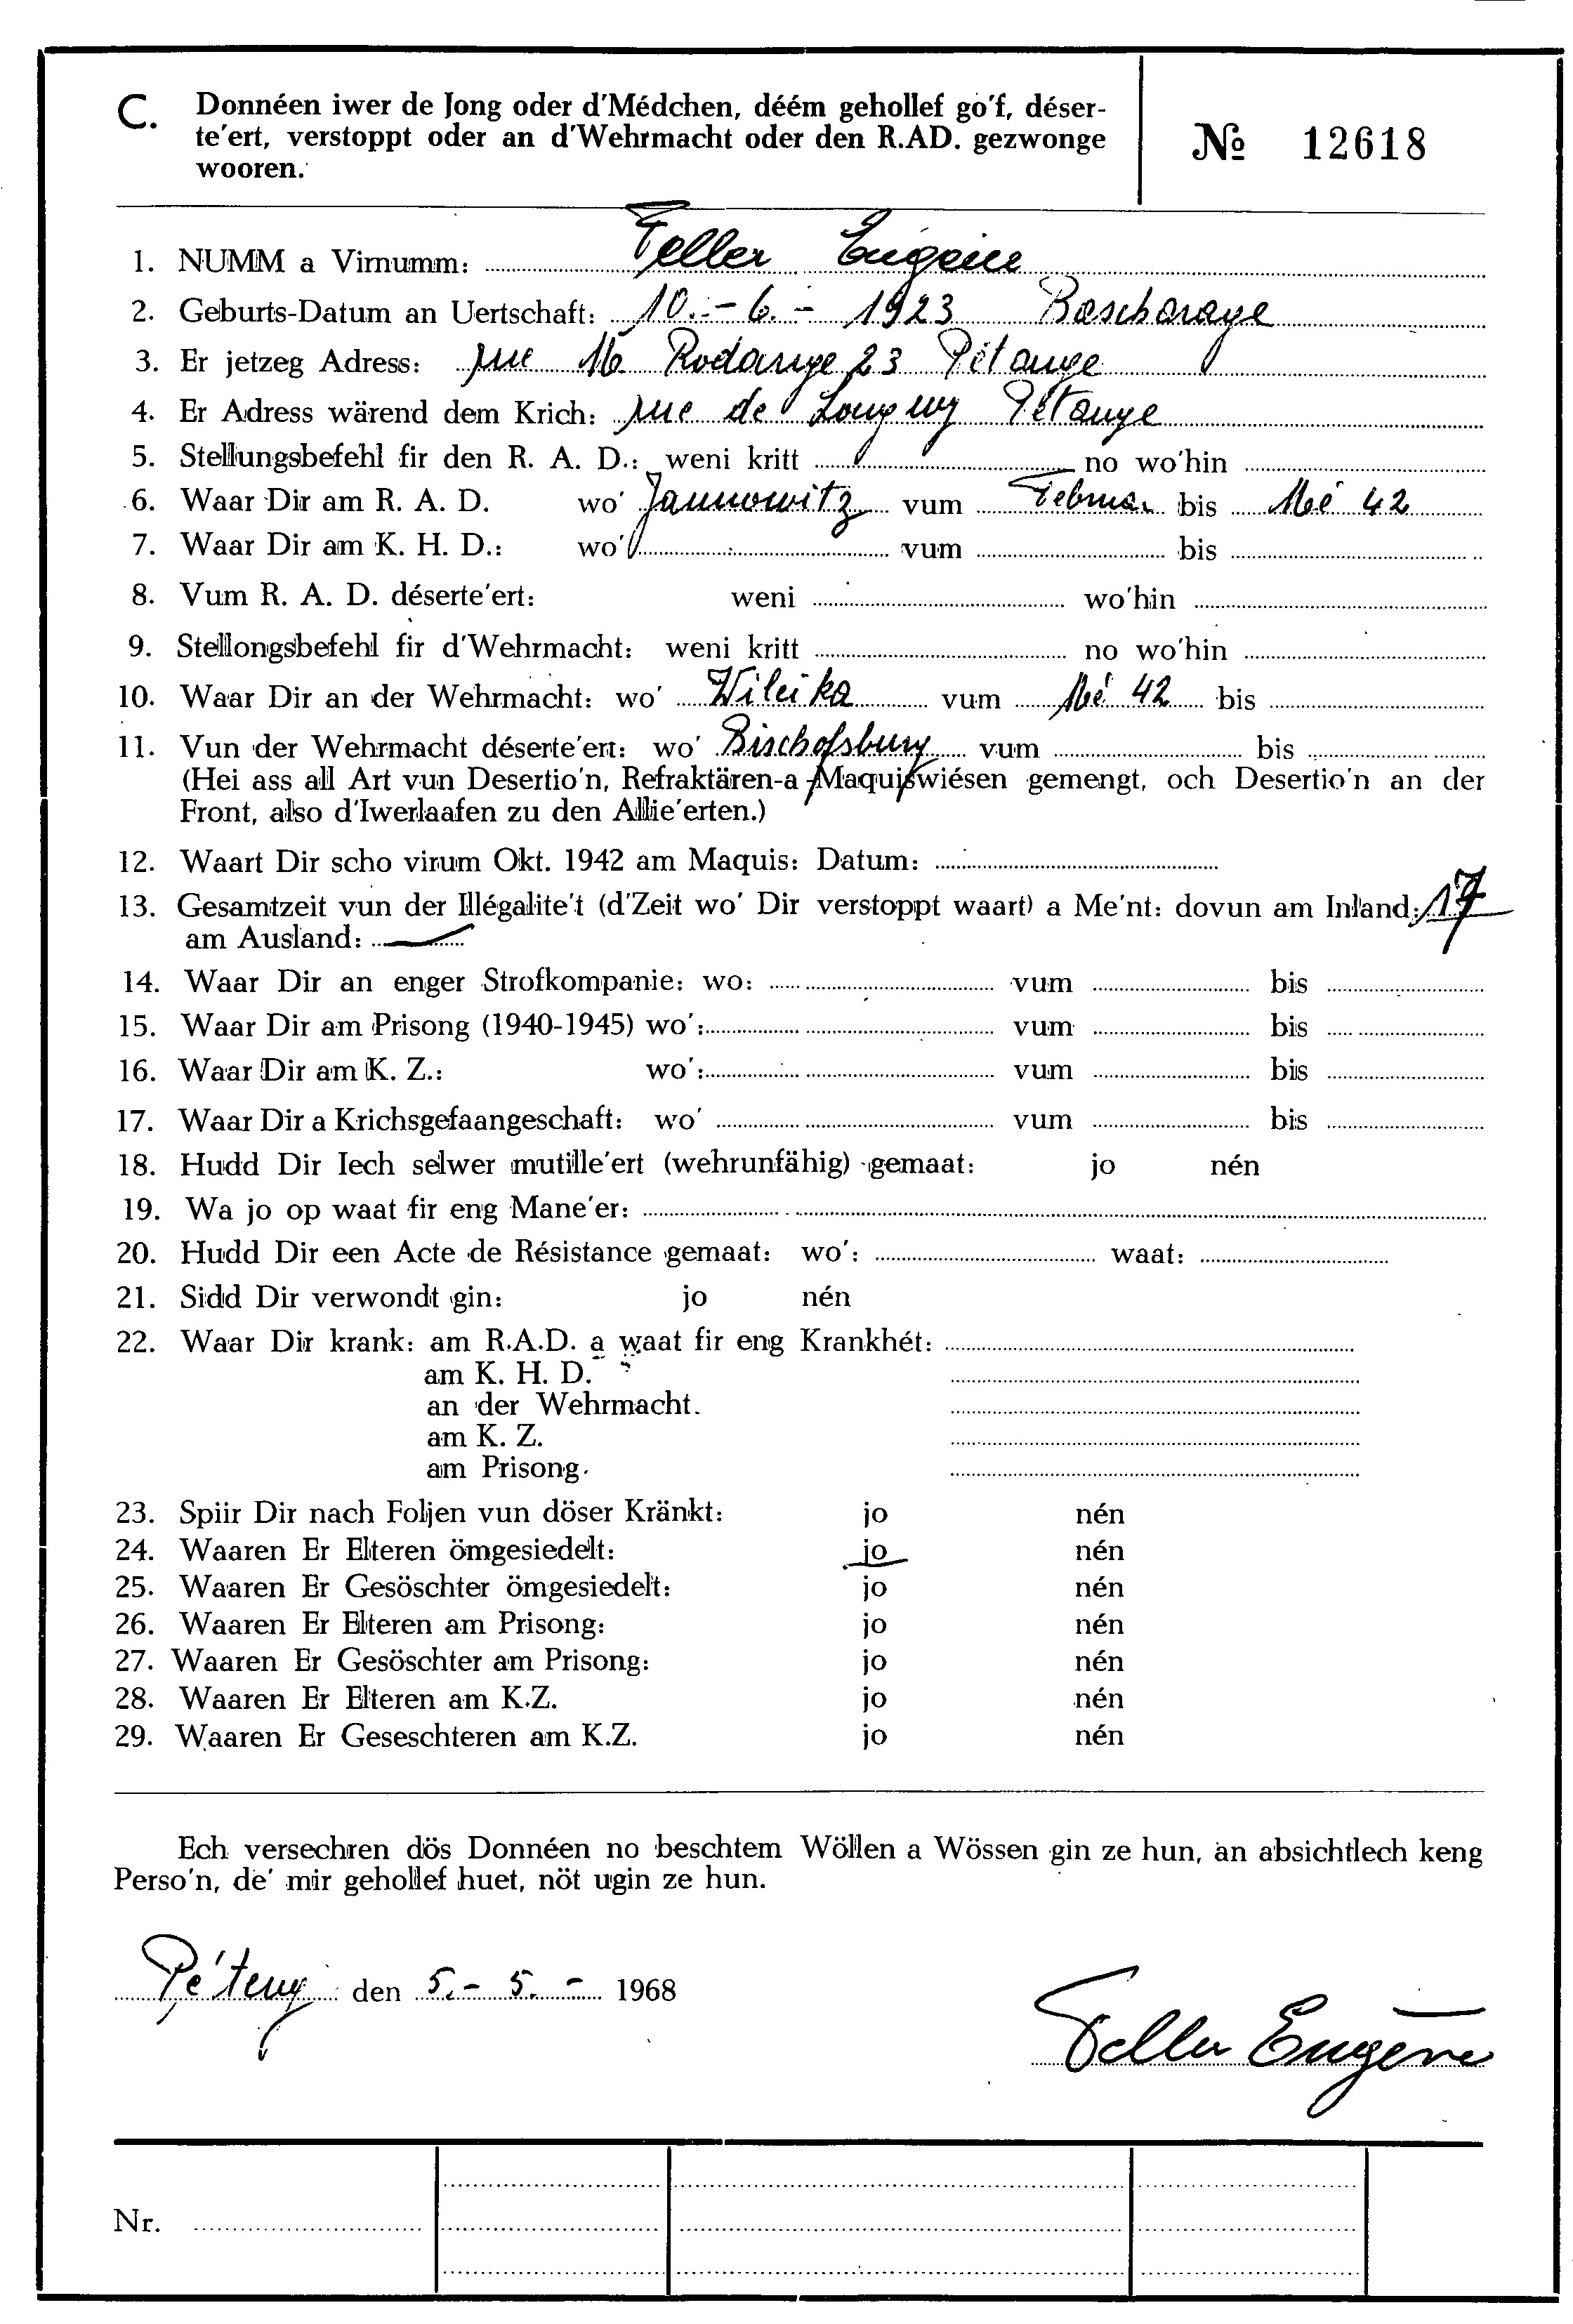 C. Donnéen iwer de Jong oder d'Médchen, déém gehollef go'f, déser-
te'ert, verstoppt oder an d'Wehrmacht oder den R.AD. gezwonge
wooren.
№ 12618
1. NUMM a Virnumm: Feller Eugène
2. Geburts-Datum an Uertschaft: 10.-6.- 1923 Bascharage
3. Er jetzeg Adress: rue Rodange 23 Pétange
4. Er Adress wärend dem Krich: rue de Longwy Pétange
5. Stellungsbefehl fir den R. A. D.: weni kritt no wo'hin
6. Waar Dir am R. A. D. wo' Jannowitz vum Februar bis Mé 42
7. Waar Dir am K. H. D.: wo' vum bis
8. Vum R. A. D. déserte'ert: weni wo'hin
9. Stellongsbefehl fir d'Wehrmacht: weni kritt no wo'hin
10. Waar Dir an der Wehrmacht: wo' Wileika vum Mé 42 bis
11. Vun der Wehrmacht déserte'ert: wo' Bischofsburg vum bis
(Hei ass all Art vun Desertio'n, Refraktären-a Maquiswiésen gemengt, och Desertio'n an der
Front, also d'Iwerlaafen zu den Allie'erten.)
12. Waart Dir scho virum Okt. 1942 am Maquis: Datum:
13. Gesamtzeit vun der Illégalite't (d'Zeit wo' Dir verstoppt waart) a Me'nt: dovun am Inland: 17
am Ausland: —
14. Waar Dir an enger Strofkompanie: wo: vum bis
15. Waar Dir am Prisong (1940-1945) wo': vum bis
16. Waar Dir am K. Z.: wo': vum bis
17. Waar Dir a Krichsgefaangeschaft: wo' vum bis
18. Hudd Dir Iech selwer mutille'ert (wehrunfähig) gemaat: jo nén
19. Wa jo op waat fir eng Mane'er:
20. Hudd Dir een Acte de Résistance gemaat: wo': waat:
21. Sidd Dir verwondt gin: jo nén
22. Waar Dir krank: am R.A.D. a waat fir eng Krankhét:
am K. H. D.
an der Wehrmacht.
am K. Z.
am Prisong.
23. Spiir Dir nach Foljen vun döser Kränkt: jo nén
24. Waaren Er Elteren ömgesiedelt: jo nén
25. Waaren Er Gesöschter ömgesiedelt: jo nén
26. Waaren Er Elteren am Prisong: jo nén
27. Waaren Er Gesöschter am Prisong: jo nén
28. Waaren Er Elteren am K.Z. jo nén
29. Waaren Er Geseschteren am K.Z. jo nén
Ech versechren dös Donnéen no beschtem Wöllen a Wössen gin ze hun, an absichtlech keng
Perso'n, de' mir gehollef huet, nöt ugin ze hun.
Péteng den 5.- 5.- 1968
Feller Eugène
Nr.